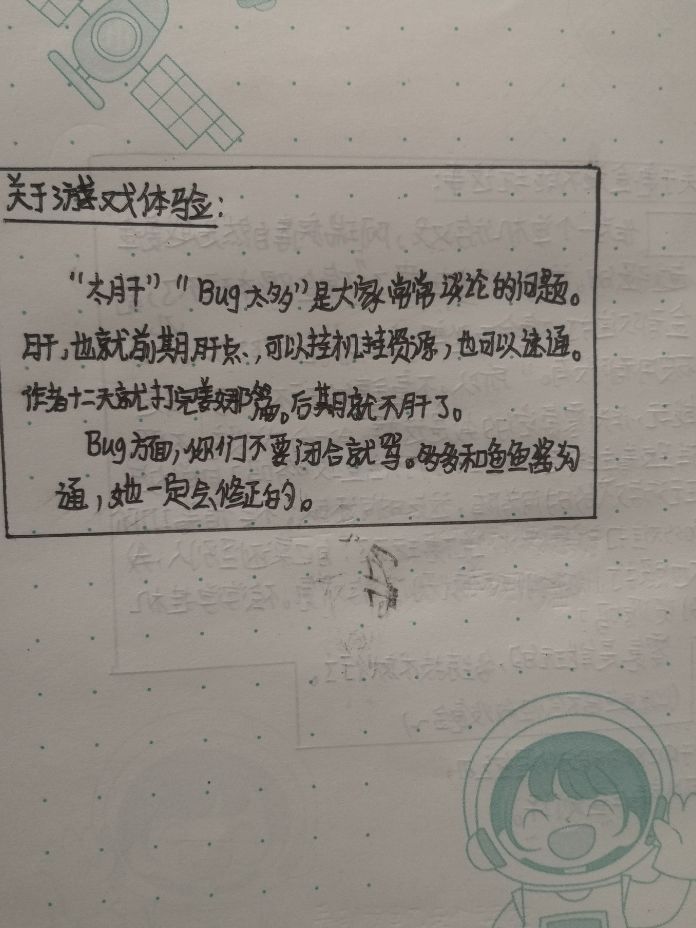 关于游戏体验:
“太肝”“Bug太多”是大家常常谈论的问题。
肝,也就前期肝点,可以挂机挂资源,也可以速通。
作者十二天就打完姜娜篇。后期就不肝了。
Bug方面,你们不要闭合就骂。多多和鱼鱼酱沟
通,她一定会修正的。